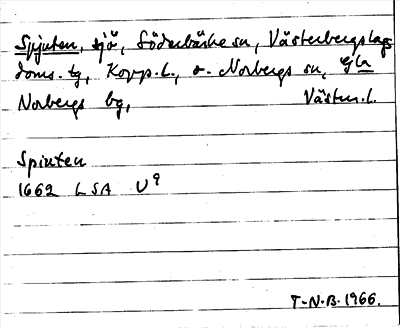 Spjuten, sjö, Söderbärke sn, Västerbergslags
doms. tg, Kopp. l., o. Norbergs sn, Gla
Norbergs bg, Västm. l.
Spinten
1662 LSA U9
T-N.B. 1966.